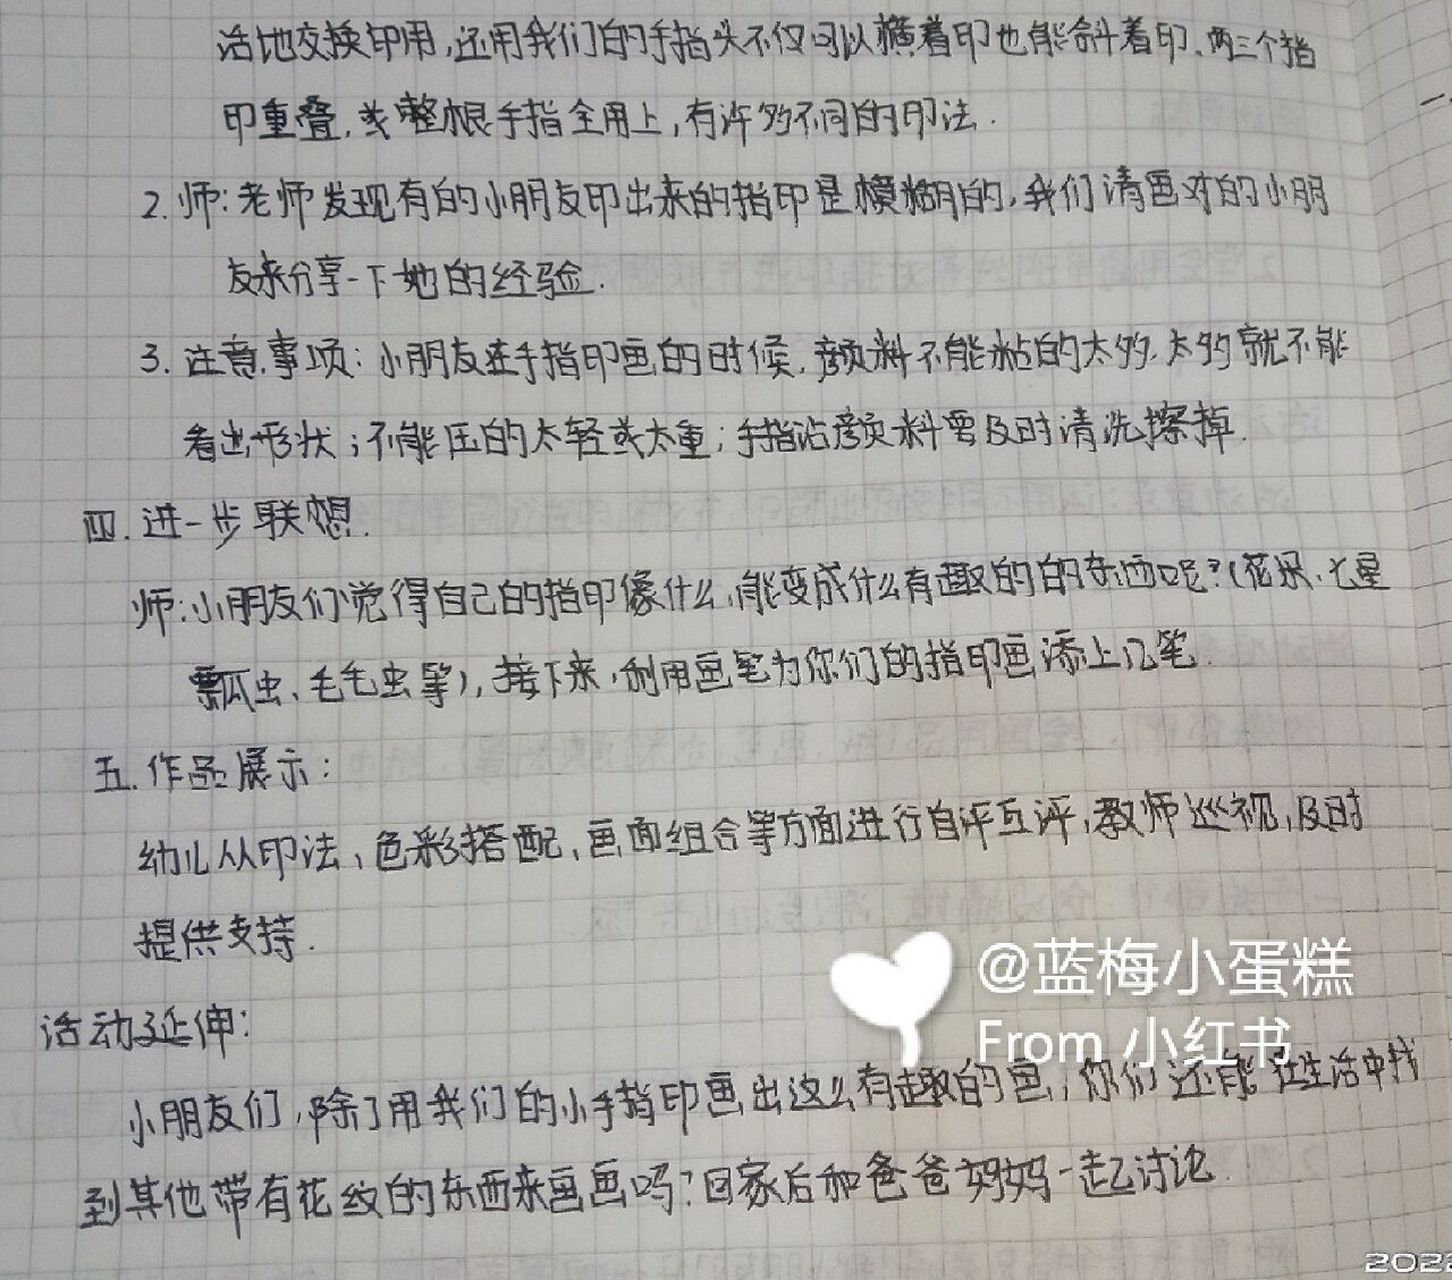 活地交换印用,还用我们的手指头不仅可以横着印也能斜着印、两三个指
印重叠,或整根手指全用上,有许多不同的印法.
2. 师:老师发现有的小朋友印出来的指印是模糊的,我们请画对的小朋
友来分享一下她的经验.
3. 注意事项:小朋友在手指印画的时候,颜料不能粘的太多.太多就不能
看出形状;不能压的太轻或太重;手指沾颜料要及时清洗擦掉.
四.进一步联想.
师:小朋友们觉得自己的指印像什么,能变成什么有趣的的东西呢?(花朵、七星
瓢虫、毛毛虫等),接下来,利用画笔为你们的指印画添上几笔.
五.作品展示:
幼儿从印法,色彩搭配,画面组合等方面进行自评互评,教师巡视,及时
提供支持.
@蓝梅小蛋糕
From 小红书
活动延伸:
小朋友们,除了用我们的小手指印画出这么有趣的画,你们还能在生活中找
到其他带有花纹的东西来画画吗?回家后和爸爸妈妈一起讨论.